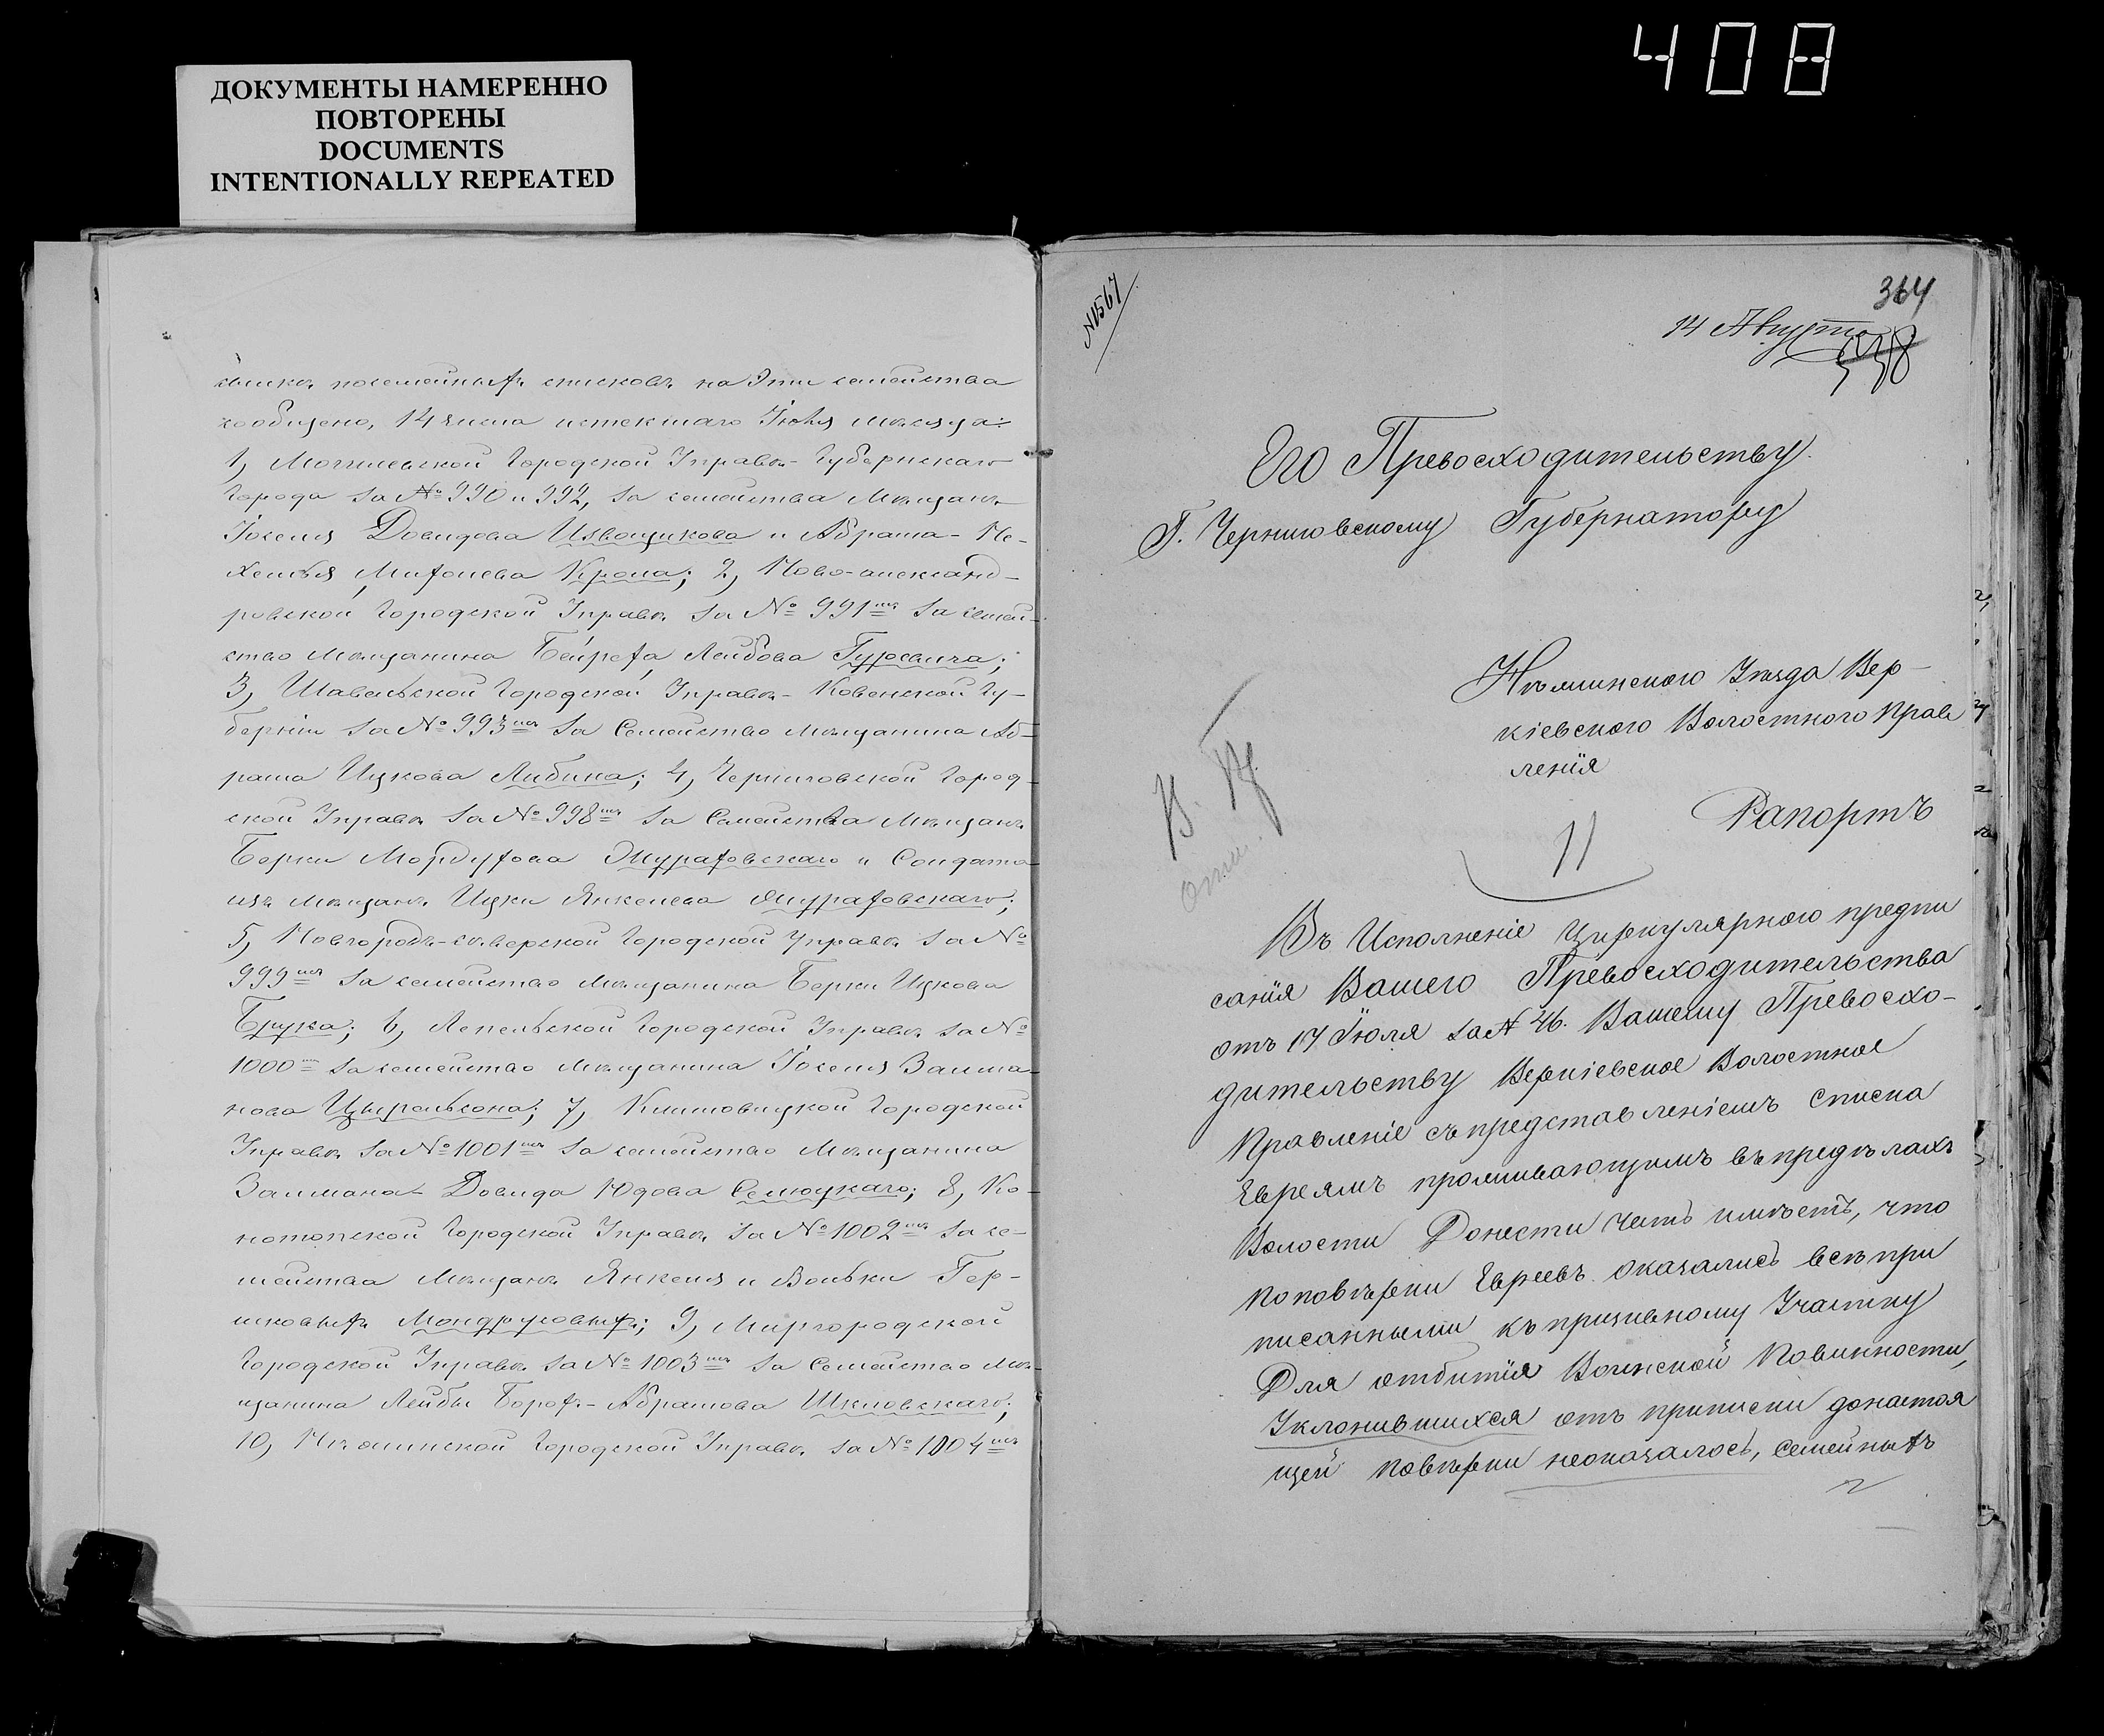 408
ДОКУМЕНТЫ НАМЕРЕННО
ПОВТОРЕНЫ
DOCUMENTS
INTENTIONALLY REPEATED
посемейныхъ списковъ на эти семейства
сообщено, 14 числа истекшаго Іюля мѣсяца:
1, Могилевской Городской Управѣ- Губернскаго
Города за № 990 и 992, за семейства Мѣщанъ
Іоселя Довидова Извощикова и Абрама-Ме-
Крола; 2, Ново-александ-
ровской Городской Управѣ за № 991мъ за семей-
ство мѣщанина Лейбова Гуревича;
3, Шавельской Городской Управѣ- Ковенской Гу-
берніи за № 993мъ за Семейство мѣщанина Аб-
рама Ицкова Либина; 4, Черниговской Город-
ской Управѣ за № 998мъ за Семейства Мѣщанъ
Берки Мордухова Шураховскаго и Солдата
изъ мѣщанъ Ицки Янкелева Шураховскаго;
5, Новгородъ-сѣверской Городской Управѣ за №
999мъ за семейство мѣщанина Берки Ицкова
Брука; 6, Лепельской Городской Управѣ за №
1000мъ за семейство мѣщанина Іоселя Залма-
нова Цырельсона; 7, Климовицкой Городской
Управѣ за № 1001мъ за семейство Мѣщанина
Залмана-Довида Юдова 8, Ко-
нотопской Городской Управѣ за № 1002мъ за се-
мейства Мѣщанъ Янкеля и Вольки Гер-
шковыхъ 9, Миргородской
Городской Управѣ за № 1003мъ за Семейство Мѣ-
щанина Лейбы Борох-Абрамова Шкловскаго;
10, Нѣжинской Городской Управѣ за № 1004мъ
№1567
364
14 Августа
Его Превосходительству
Г. Черниговскому Губернатору
Нѣжинского Уѣзда Вер-
кіевского Волостного Прав
ленія
Рапортъ
11
Въ Исполненіе Циркулярного предпи
санія Вашего Превосходительства
отъ 17 Іюля за № 46. Вашему Превосхо-
дительству Веркіевское Волостное
Правленіе съ представленіемъ Списка
Евреямъ проживающимъ въ предѣлахъ
Волости Донести честь имѣетъ, что
по повѣрки Евреевъ оказались всѣ при
писанными къ призивному Участку
Для отбитія Воинской Повинности,
Уклонившихся отъ приписки до настоя
щей повѣрки неоказалось, Семейныхъ